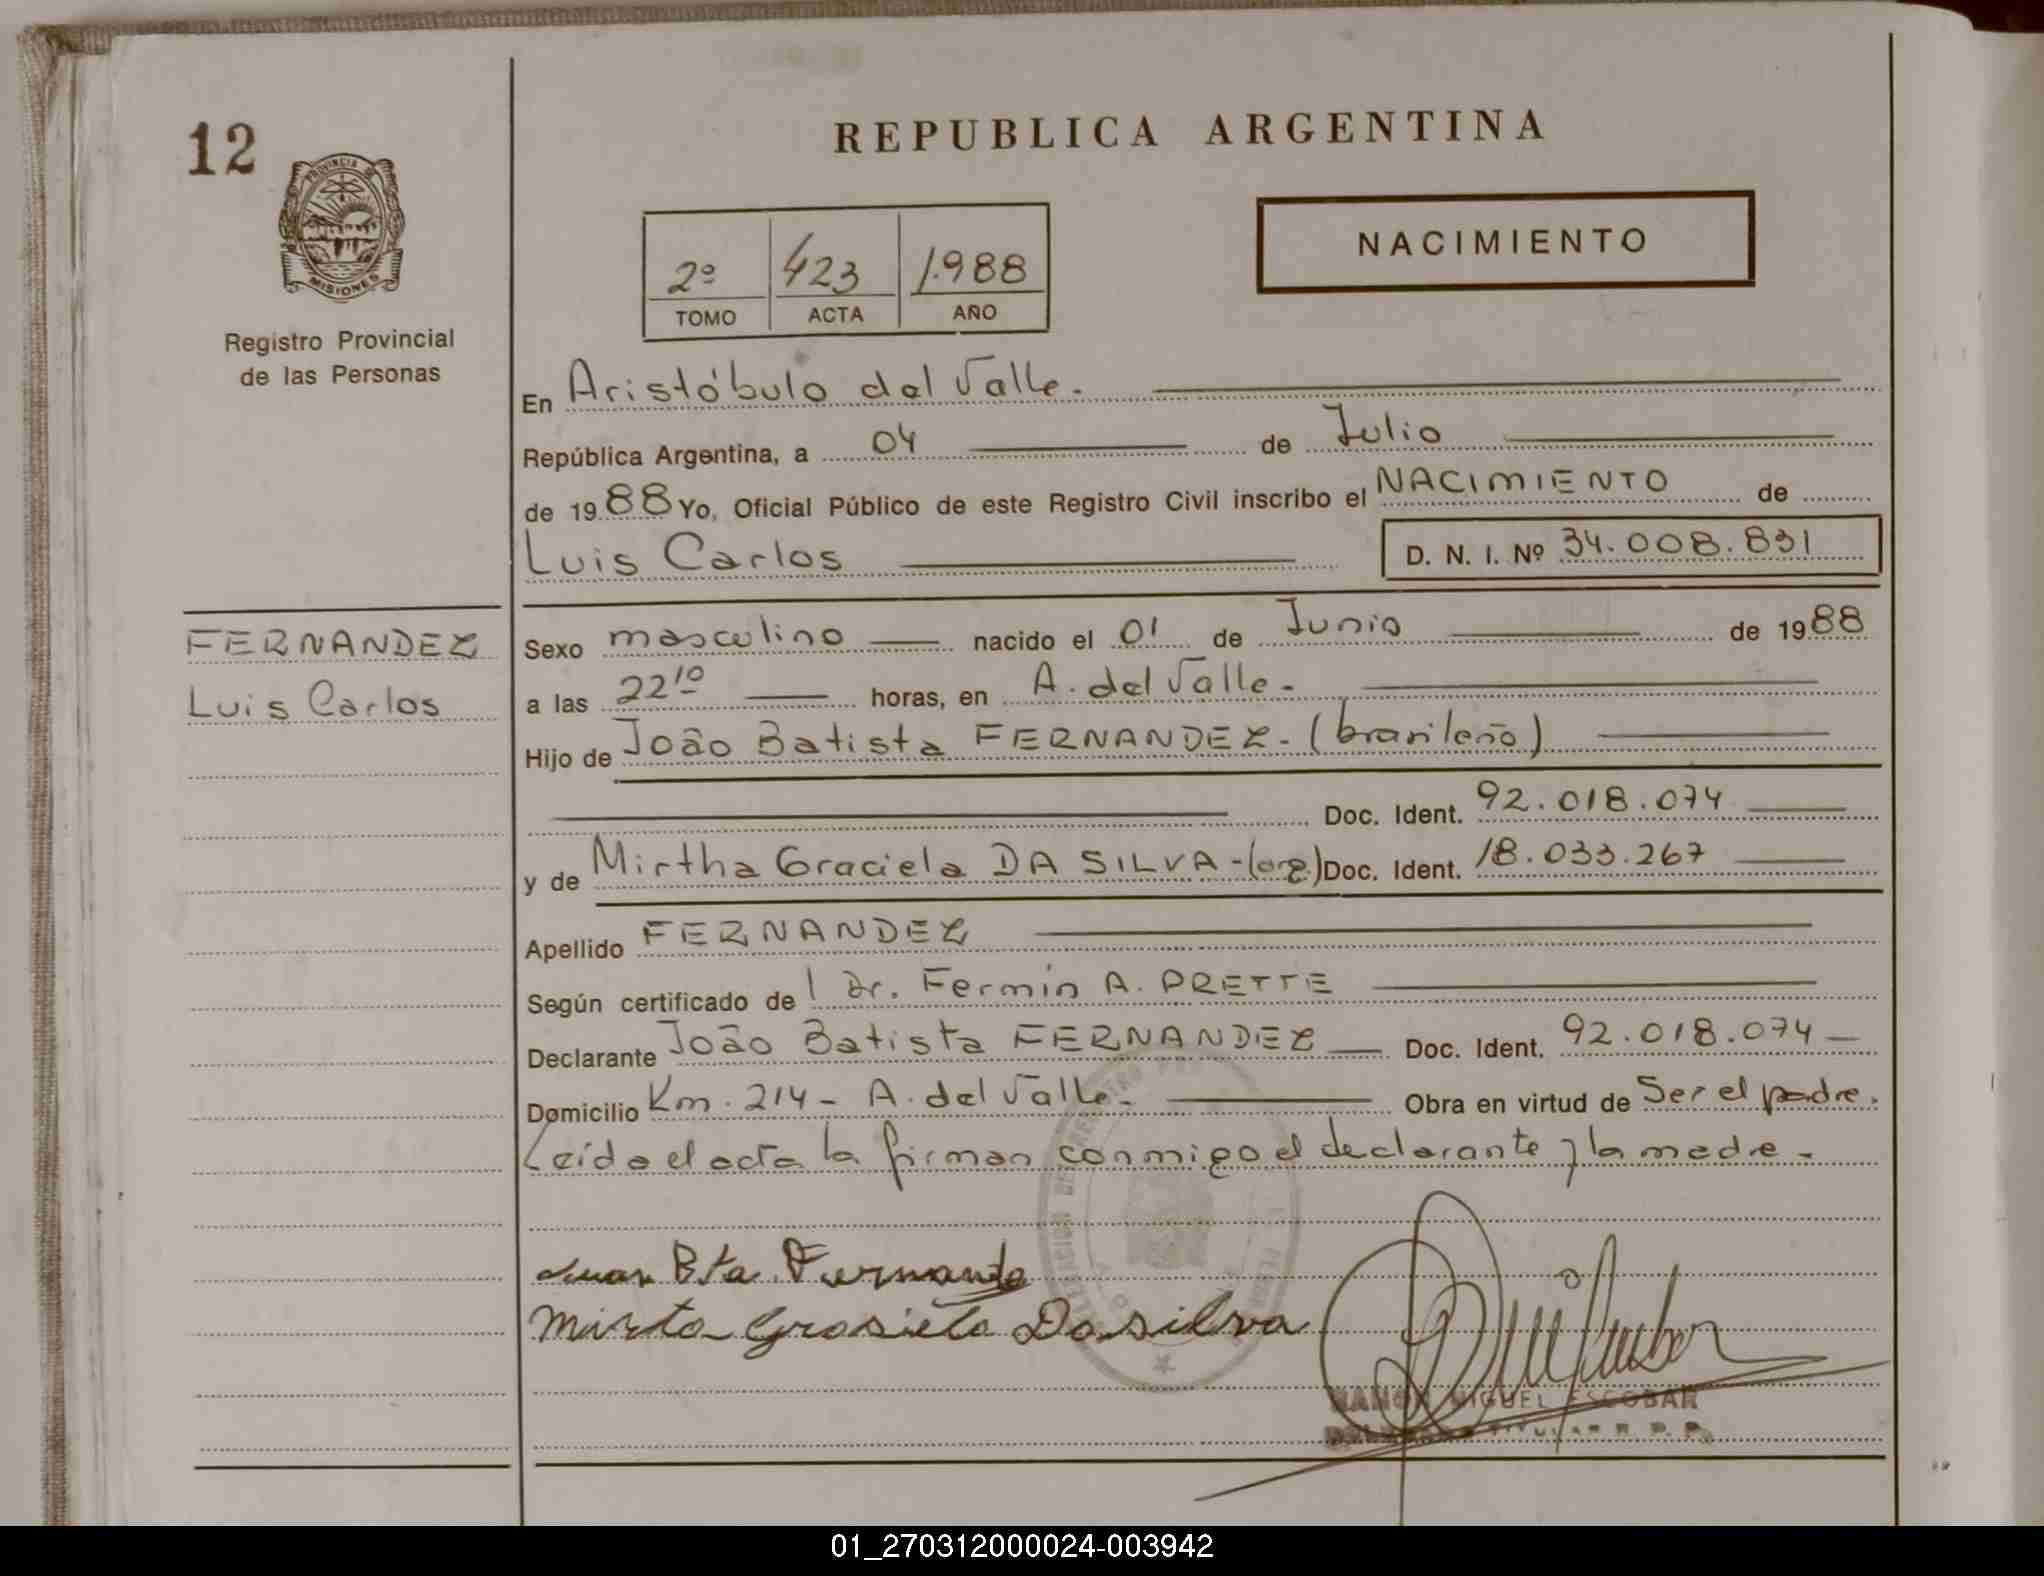 12
PROVINCIA DE
MISIONES
Registro Provincial
de las Personas
REPUBLICA ARGENTINA
2º 423 1.988
TOMO ACTA AÑO
NACIMIENTO
En Aristóbulo del Valle.
República Argentina, a 04 de Julio
de 1988 Yo, Oficial Público de este Registro Civil inscribo el NACIMIENTO de
Luis Carlos D. N. I. Nº 34.008.831
FERNANDEZ
Luis Carlos
Sexo masculino nacido el 01 de Junio de 1988
a las 22¹⁰ horas, en A. del Valle.-
Hijo de João Batista FERNANDEZ.- (brasileño)
Doc. Ident. 92.018.074
y de Mirtha Graciela DA SILVA-(arg.) Doc. Ident. 18.033.267
Apellido FERNANDEZ
Según certificado de Dr. Fermín A. PRETTE
Declarante João Batista FERNANDEZ Doc. Ident. 92.018.074
Domicilio Km. 214- A. del Valle.- Obra en virtud de Ser el padre.
Leída el acta la firman conmigo el declarante y la madre.-
Juan Bta Fernande
Mirta Grasieta Da silva
RAMON MIGUEL ESCOBAR
TITULAR R. P. P.
01_270312000024-003942